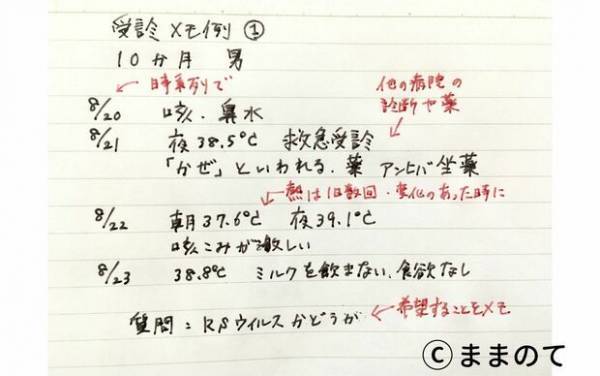 受診メモ例①
10か月 男
時系列で
8/20 咳・鼻水
他の病院の
診断や薬
8/21 夜38.5℃ 救急受診
「かぜ」といわれる。薬 アンヒバ坐薬
熱は1日数回・変化のあった時に
8/22 朝37.6℃ 夜39.1℃
咳こみが激しい
8/23 38.8℃ ミルクを飲まない、食欲なし
質問:RSウイルスかどうか
希望することをメモ
©ままのて